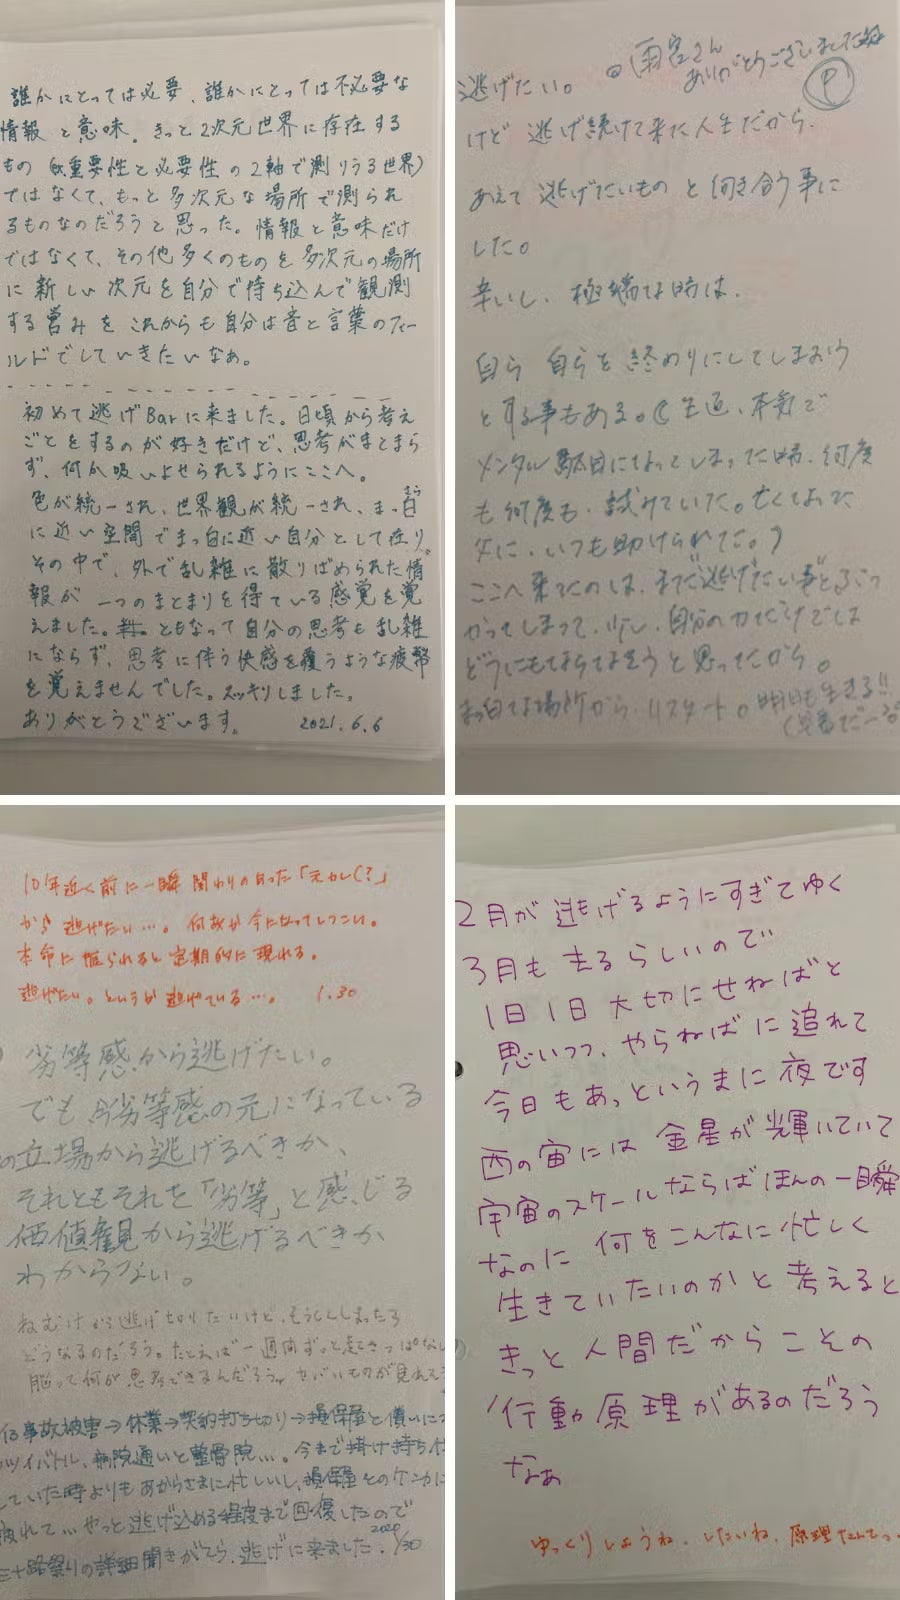 誰かにとっては必要、誰かにとっては不必要な
情報と意味。きっと2次元世界に存在する
もの(重要性と必要性の2軸で測りうる世界)
ではなくて、もっと多次元な場所で測られ
るものなのだろうと思った。情報と意味だけ
ではなくて、その他多くのものを多次元の場所
に新しい次元を自分で持ち込んで観測
する営みをこれからも自分は音と言葉のフィー
ルドでしていきたいなあ。
初めて逃げBarに来ました。日頃から考え
ごとをするのが好きだけど、思考がまとまら
ず、何か吸いよせられるようにここへ。
色が統一され、世界観が統一され、まっ白
に近い空間でまっ白に近い自分として在り。
その中で、外で乱雑に散りばめられた情
報が一つのまとまりを得ている感覚を覚
えました。ともなって自分の思考も乱雑
にならず、思考に伴う快感を覆うような疲弊
を覚えませんでした。スッキリしました。
ありがとうございます。 2021.6.6
雨宮さん
ありがとうございました
逃げたい。
けど逃げ続けて来た人生だから、
あえて逃げたいものと向き合う事に
した。
辛いし、極端な時は、
自ら自らを終わりにしてしまおう
とする事もある。(生还、本気で
メンタル駄目になってしまった時、何度
も何度も、試みていた。亡くなった
父に、いつも助けられてた。)
ここへ来たのは、まだ逃げたい事とぶつ
かってしまって、少し、自分の力だけでは
どうにもならなそうと思ってたから。
まっ白な場所から、リスタート。明日も生きる!!
10年近く前に一瞬関わりのあった「元カレ(?」
から逃げたい…。何故か今になってしつこい。
本命に振られると定期的に現れる。
逃げたい。というか逃げている…。 1.30
劣等感から逃げたい。
でも今劣等感の元になっている
の立場から逃げるべきか、
それともそれを「劣等」と感じる
価値観から逃げるべきか
わからない。
ねむけから逃げ切りたいけど、もうそくしまったら
どうなるのだろう。たとえば一週間ずっと起きっぱなし
脳って何が思考できるんだろう。ヤバいものが見れ
事故被害→休業→契約打ち切り→損保屋と償いに
バトル、病院通いと整骨院…。今まで掛け持ち
していた時よりもあからさまに忙しいし、損保屋とのケンカに
疲れて…やっと逃げ込める程度まで回復したので
三十路祭りの詳細聞きがてら、逃げに来ました。2021/30
2月が逃げるようにすぎてゆく
3月も去るらしいので
1日1日大切にせねばと
思いつつ、やらねばに追れて
今日もあっというまに夜です
西の宙には金星が輝いていて
宇宙のスケールならばほんの一瞬
なのに何をこんなに忙しく
生きていたいのかと考えると
きっと人間だからこその
行動原理があるのだろう
なぁ
ゆっくりしようね、したいね、原理なんてっ